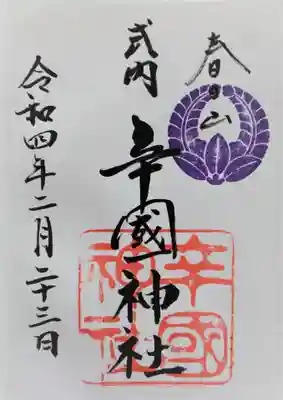 春日山
式内
辛國神社
辛國神社
令和四年二月二十三日